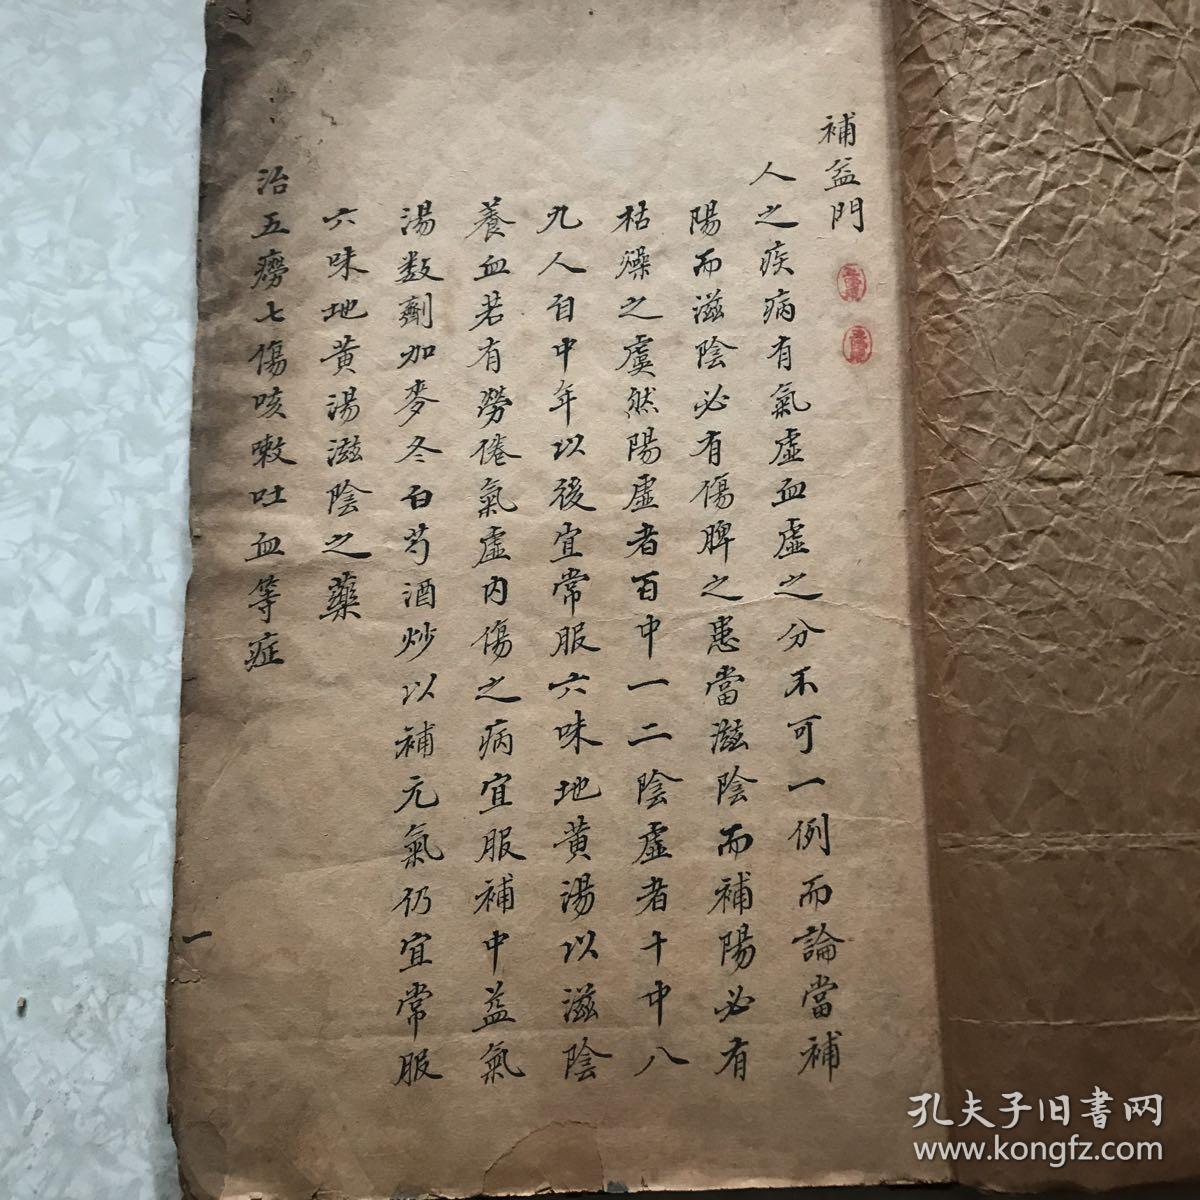 補益門
人之疾病有氣虛血虛之分不可一例而論當補
陽而滋陰必有傷脾之患當滋陰而補陽必有
枯燥之虞然陽虛者百中一二陰虛者十中八
九人自中年以後宜常服六味地黃湯以滋陰
養血若有勞倦氣虛內傷之病宜服補中益氣
湯数劑加麥冬白芍酒炒以補元氣仍宜常服
六味地黃湯滋陰之藥
治五癆七傷咳嗽吐血等症
一
孔夫子旧書网
www.kongfz.com